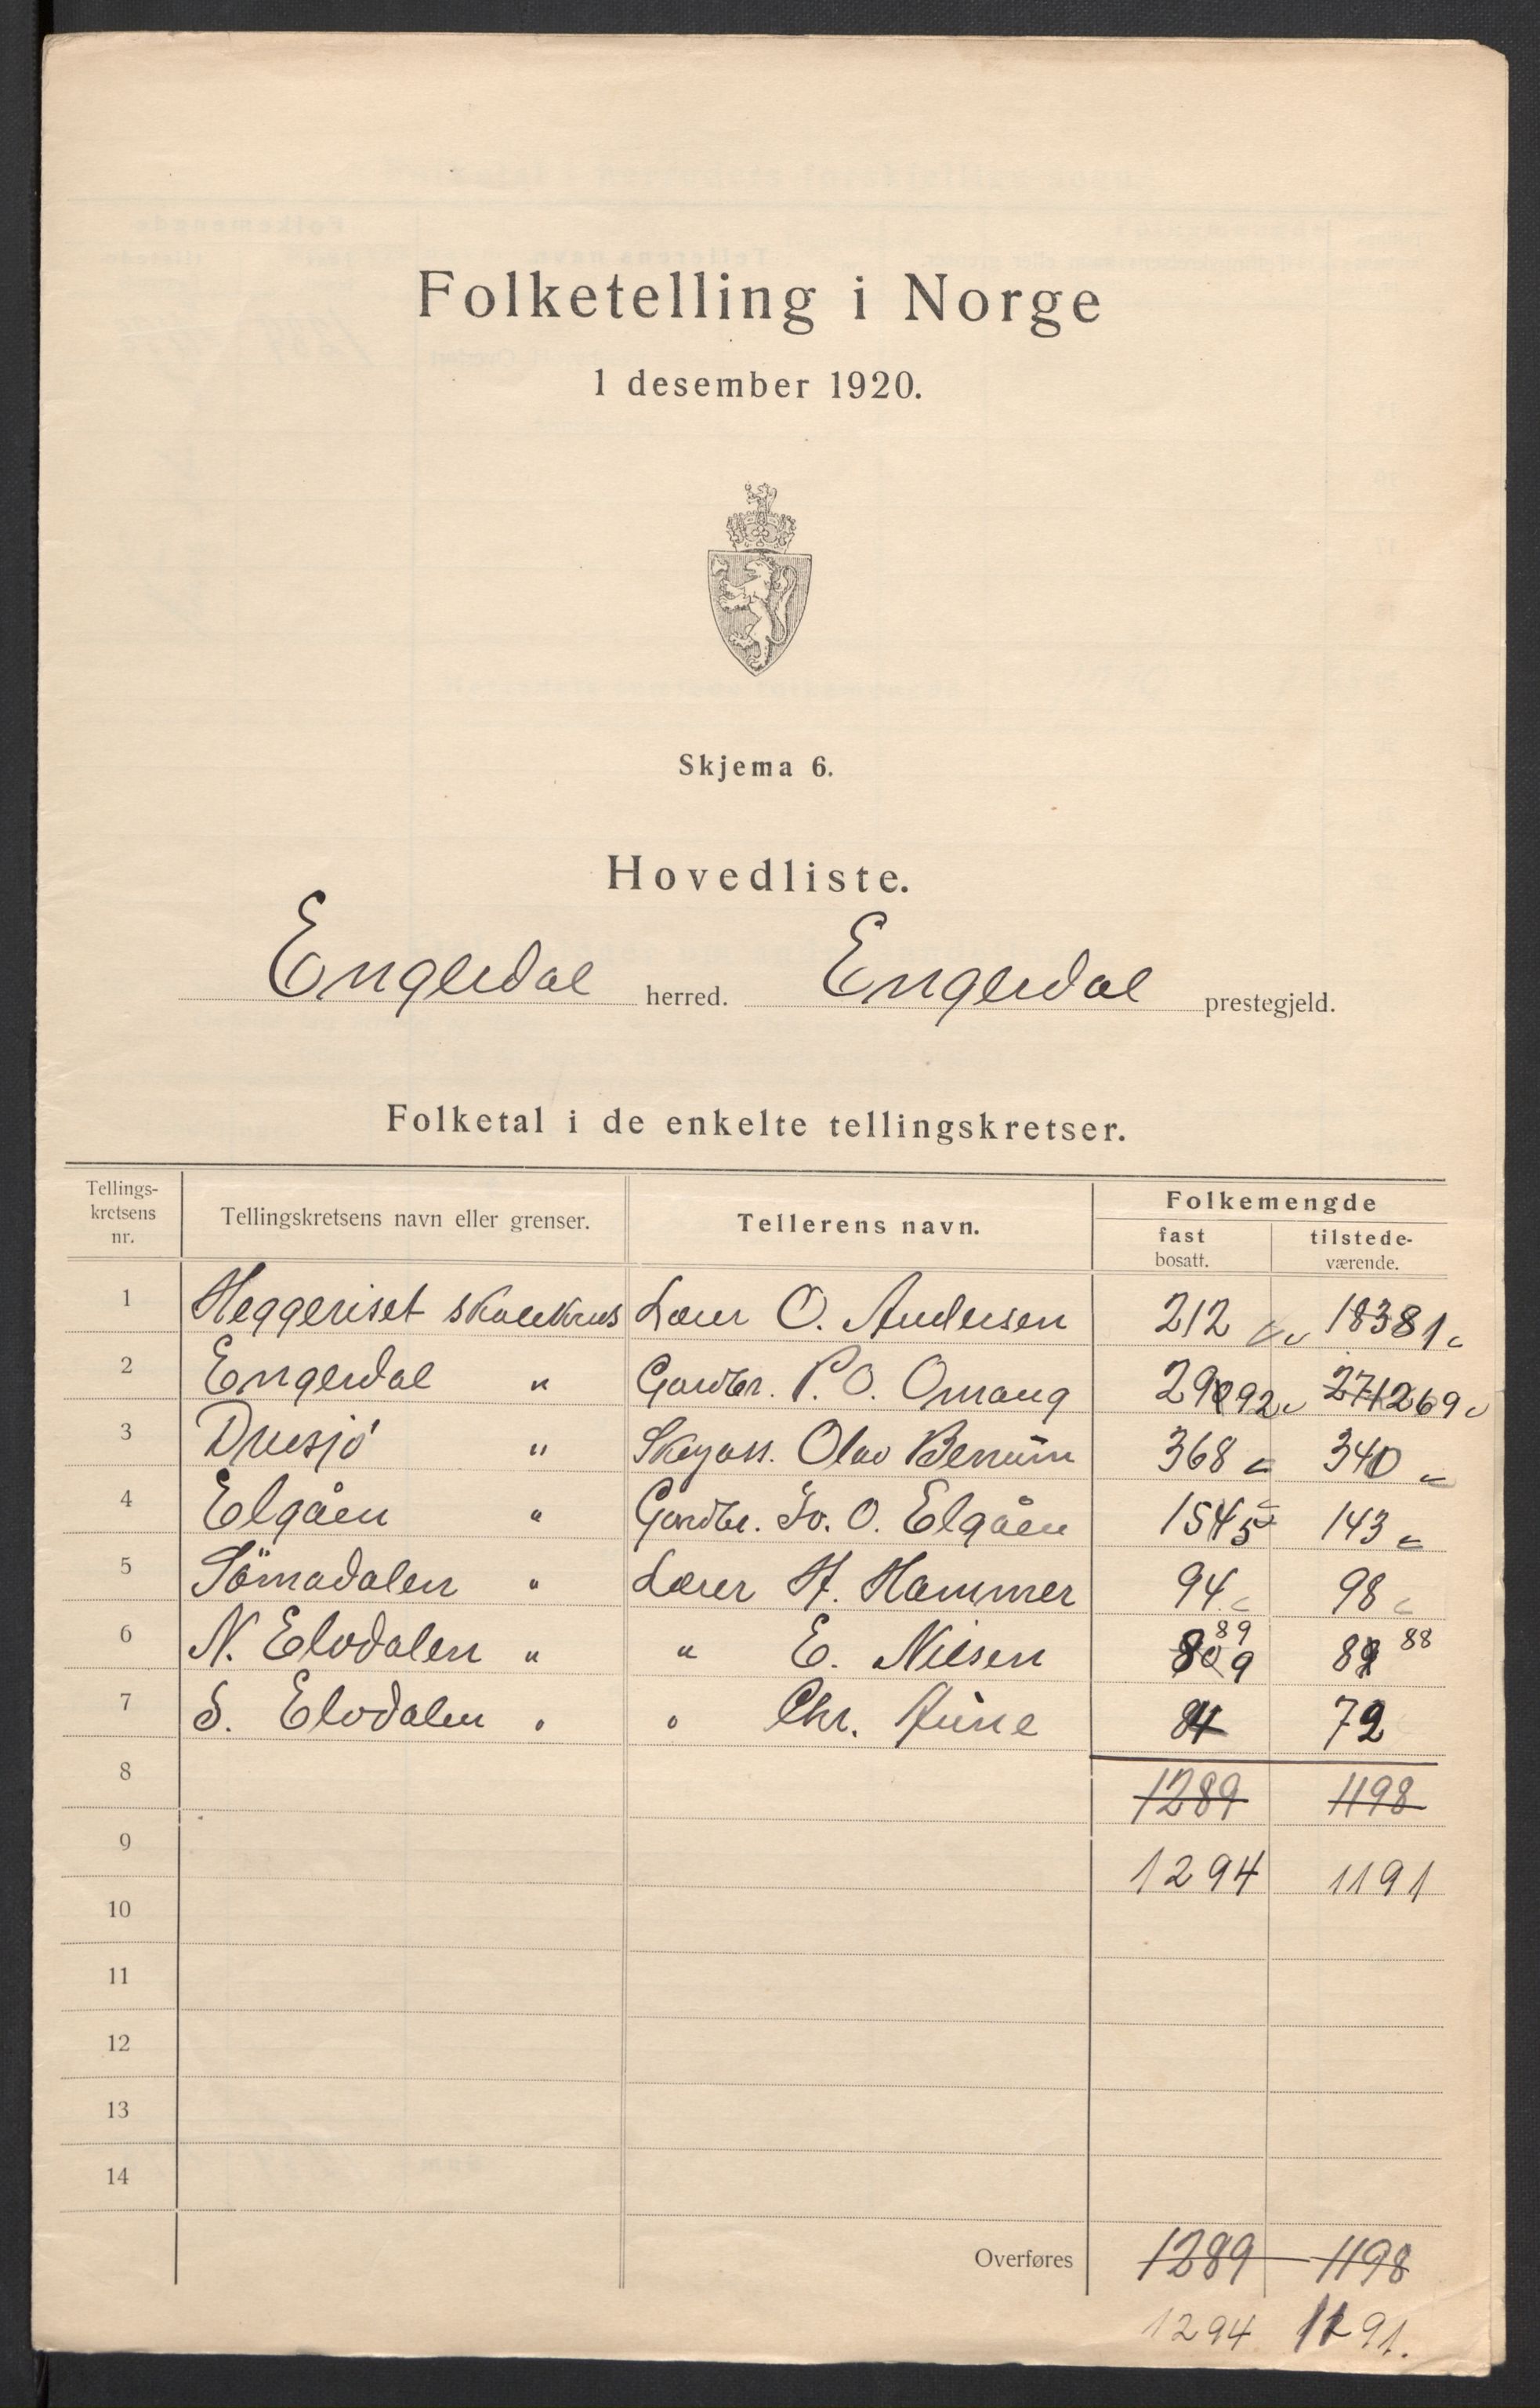 Folketelling i Norge
1 desember 1920.
Skjema 6.
Hovedliste.
Engerdal herred. Engerdal prestegjeld.
Folketal i de enkelte tellingskretser.
Tellings-kretsens nr. Tellingskretsens navn eller grenser. Tellerens navn. Folkemengde
fast bosatt. tilstede-værende.
1 Heggeriset skolekrets Lærer O. Andersen 212 183 81
2 Engerdal " Gardbr. P. O. Omang 290 92 271 269
3 Drevsjø " Skogass. Olav Berrum 368 340
4 Elgåen " Gardbr. Jo. O. Elgåen 154 5 143
5 Sömådalen " Lærer H. Hammer 94 98
6 N. Elvdalen " " E. Nilsen 80 9 89 88
7 S. Elvdalen " " Chr. Aune 84 72
8 1289 1198
9 1294 1191
10
11
12
13
14
Overføres 1289 1198
1294 1191.